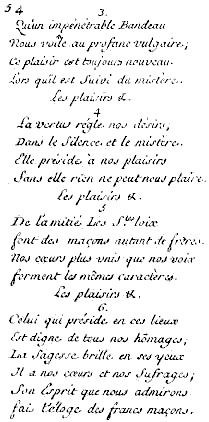 54
3.
Qu'un impénétrable Bandeau
Nous voile au profane vulgaire;
Ce plaisir est toujours nouveau
Lors qu'il est Suivi du mistere.
Les plaisirs &.
4
La vertus régle nos désirs;
Dans le Silence et le mistere
Elle préside à nos plaisirs
Sans elle rien ne peut nous plaire.
Les plaisirs &.
5
De l'amitié Les Stes loix
font des maçons autant de frères.
Nos cœurs plus unis que nos voix
forment les mêmes caractères.
Les plaisirs &.
6.
Celui qui préside en ces lieux
Est digne de tous nos hômages;
La Sagesse brille en ses yeux
Il a nos cœurs et nos Sufrages;
Son Esprit que nous admirons
fais l'éloge des francs maçons.